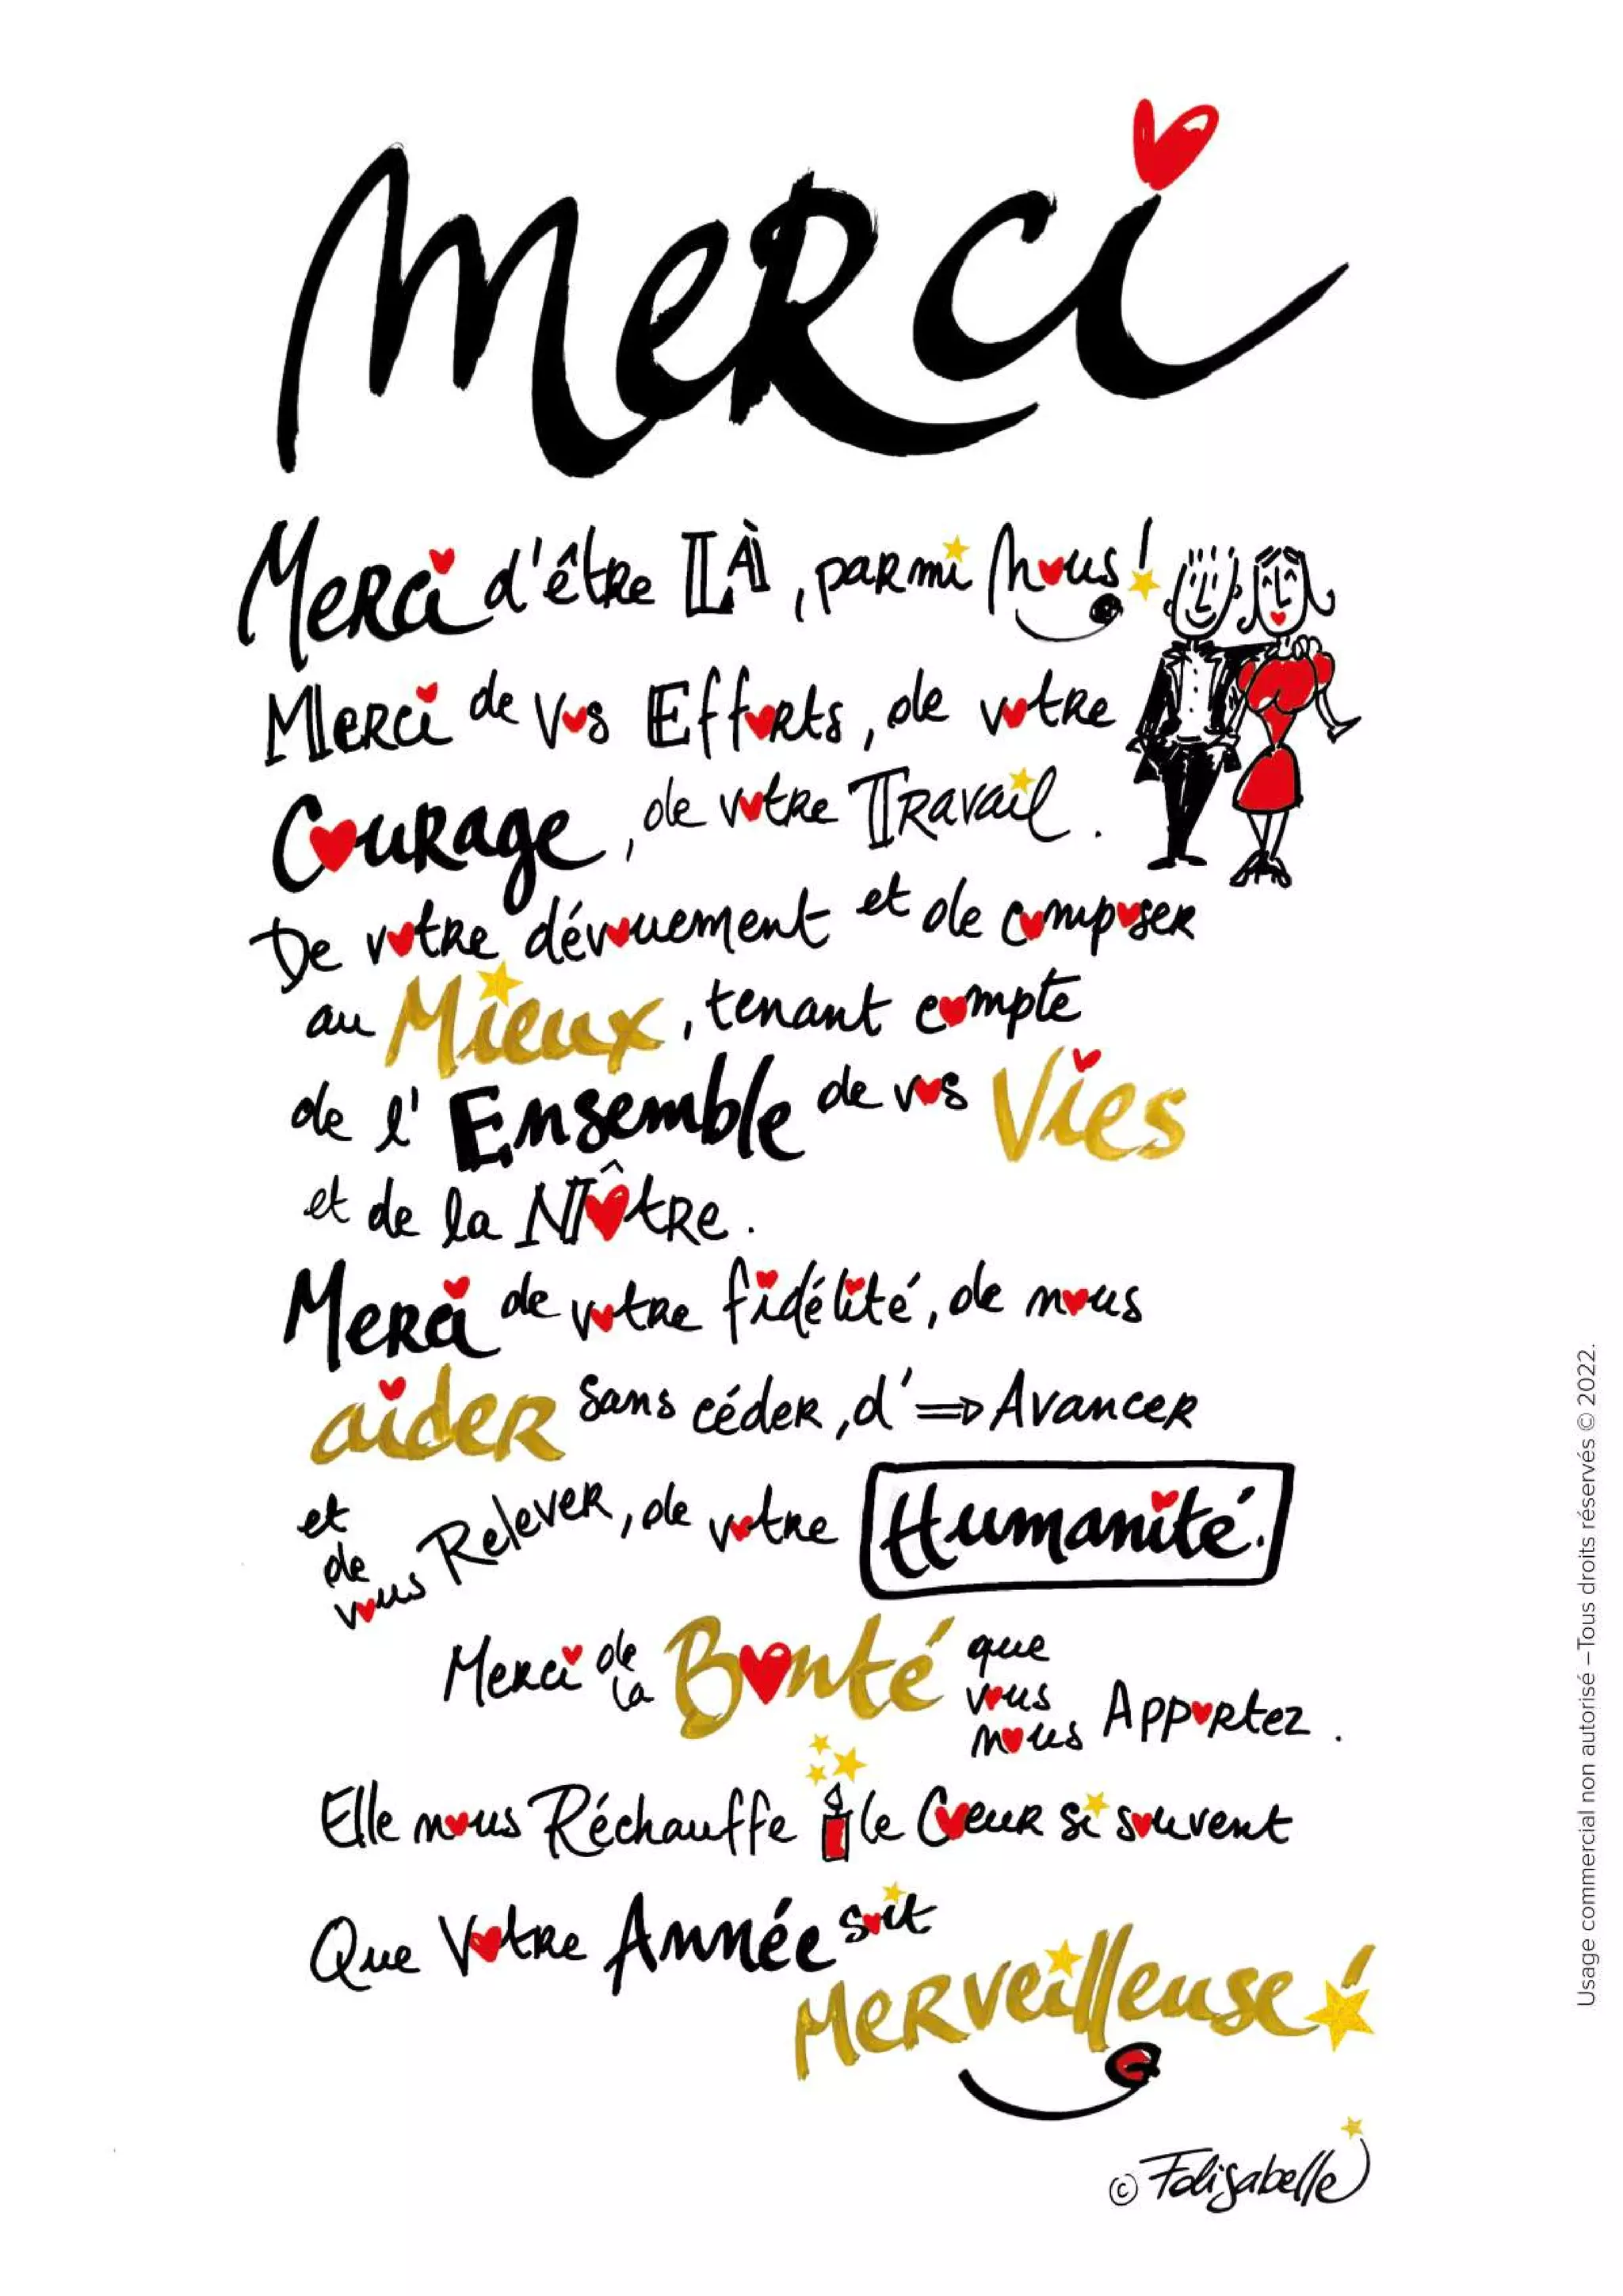 Merci
Merci d'être LÀ, parmi nous!
Merci de vos Efforts, de votre
Courage, de votre Travail.
De votre dévouement et de composer
au Mieux, tenant compte
de l'Ensemble de vos Vies
et de la Nôtre.
Merci de votre fidélité, de nous
aider sans céder, d'⇒Avancer
et de vous Relever, de votre Humanité.
Merci de la Bonté que vous nous Apportez.
Elle nous Réchauffe le Cœur si souvent
Que Votre Année soit
Merveilleuse!
© Folisabelle
Usage commercial non autorisé – Tous droits réservés © 2022.